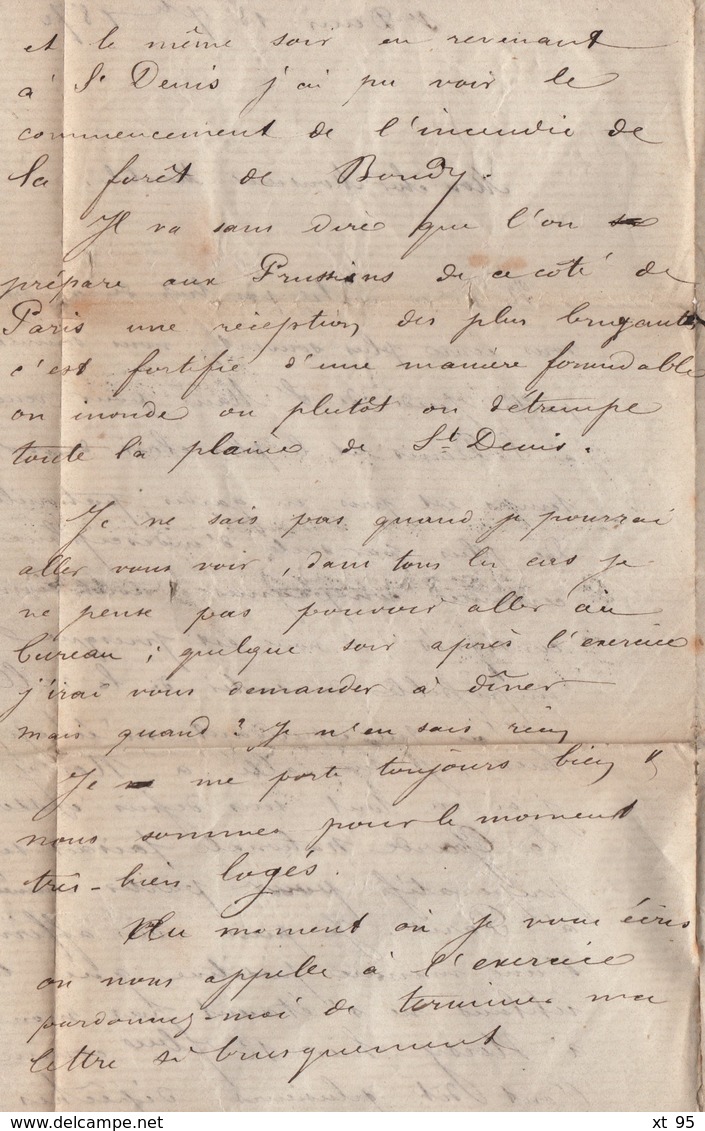 et le même soir en revenant
à St Denis j'ai pu voir le
commencement de l'incendie de
la forêt de Bondy.
Il va sans dire que l'on
prépare aux Prussiens de ce coté de
Paris une réception des plus bruyantes
c'est fortifié d'une manière formidable
on inonde ou plutôt on détrempe
toute la plaine de St Denis.
Je ne sais pas quand je pourrai
aller vous voir, dans tous les cas je
ne pense pas pouvoir aller au
bureau ; quelque soir après l'exercice
j'irai vous demander à dîner
mais quand ? Je n'en sais rien
Je me porte toujours bien &
nous sommes pour le moment
très-bien logés.
Au moment où je vous écris
on nous appelle à l'exercice
pardonnez-moi de terminer ma
lettre si brusquement
xt 95